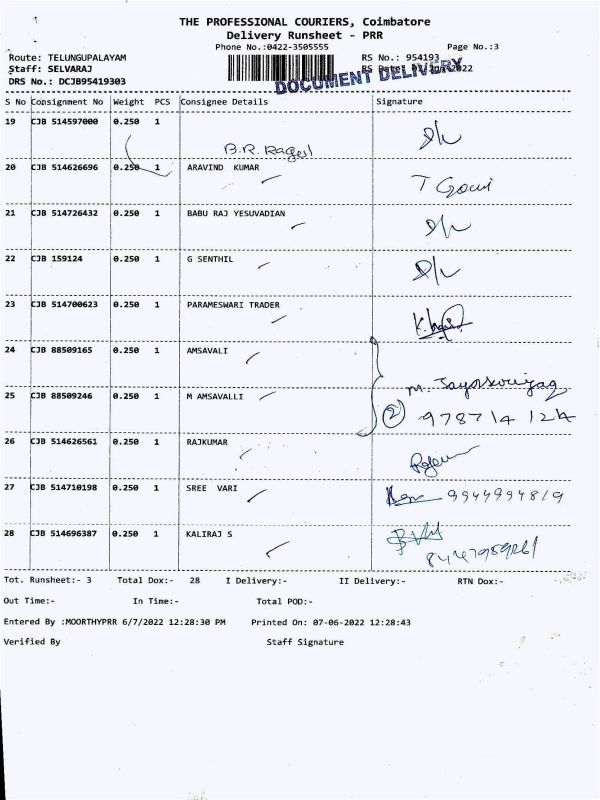 THE PROFESSIONAL COURIERS, Coimbatore
Delivery Runsheet - PRR
Phone No.:0422-3505555 Page No.:3
Route: TELUNGUPALAYAM RS No.: 954193
Staff: SELVARAJ RS Date: 2022
DRS No.: DCJB95419303
DOCUMENT DELIVERY
S No Consignment No Weight PCS Consignee Details Signature
19 CJB 514597000 0.250 1
B.R. Ragul
20 CJB 514626696 0.250 1 ARAVIND KUMAR
T Gowri
21 CJB 514726432 0.250 1 BABU RAJ YESUVADIAN
22 CJB 159124 0.250 1 G SENTHIL
23 CJB 514700623 0.250 1 PARAMESWARI TRADER
24 CJB 88509165 0.250 1 AMSAVALI
25 CJB 88509246 0.250 1 M AMSAVALLI
2 978714124
26 CJB 514626561 0.250 1 RAJKUMAR
27 CJB 514710198 0.250 1 SREE VARI
9944994819
28 CJB 514696387 0.250 1 KALIRAJ S
Tot. Runsheet:- 3 Total Dox:- 28 I Delivery:- II Delivery:- RTN Dox:-
Out Time:- In Time:- Total POD:-
Entered By :MOORTHYPRR 6/7/2022 12:28:30 PM Printed On: 07-06-2022 12:28:43
Verified By Staff Signature